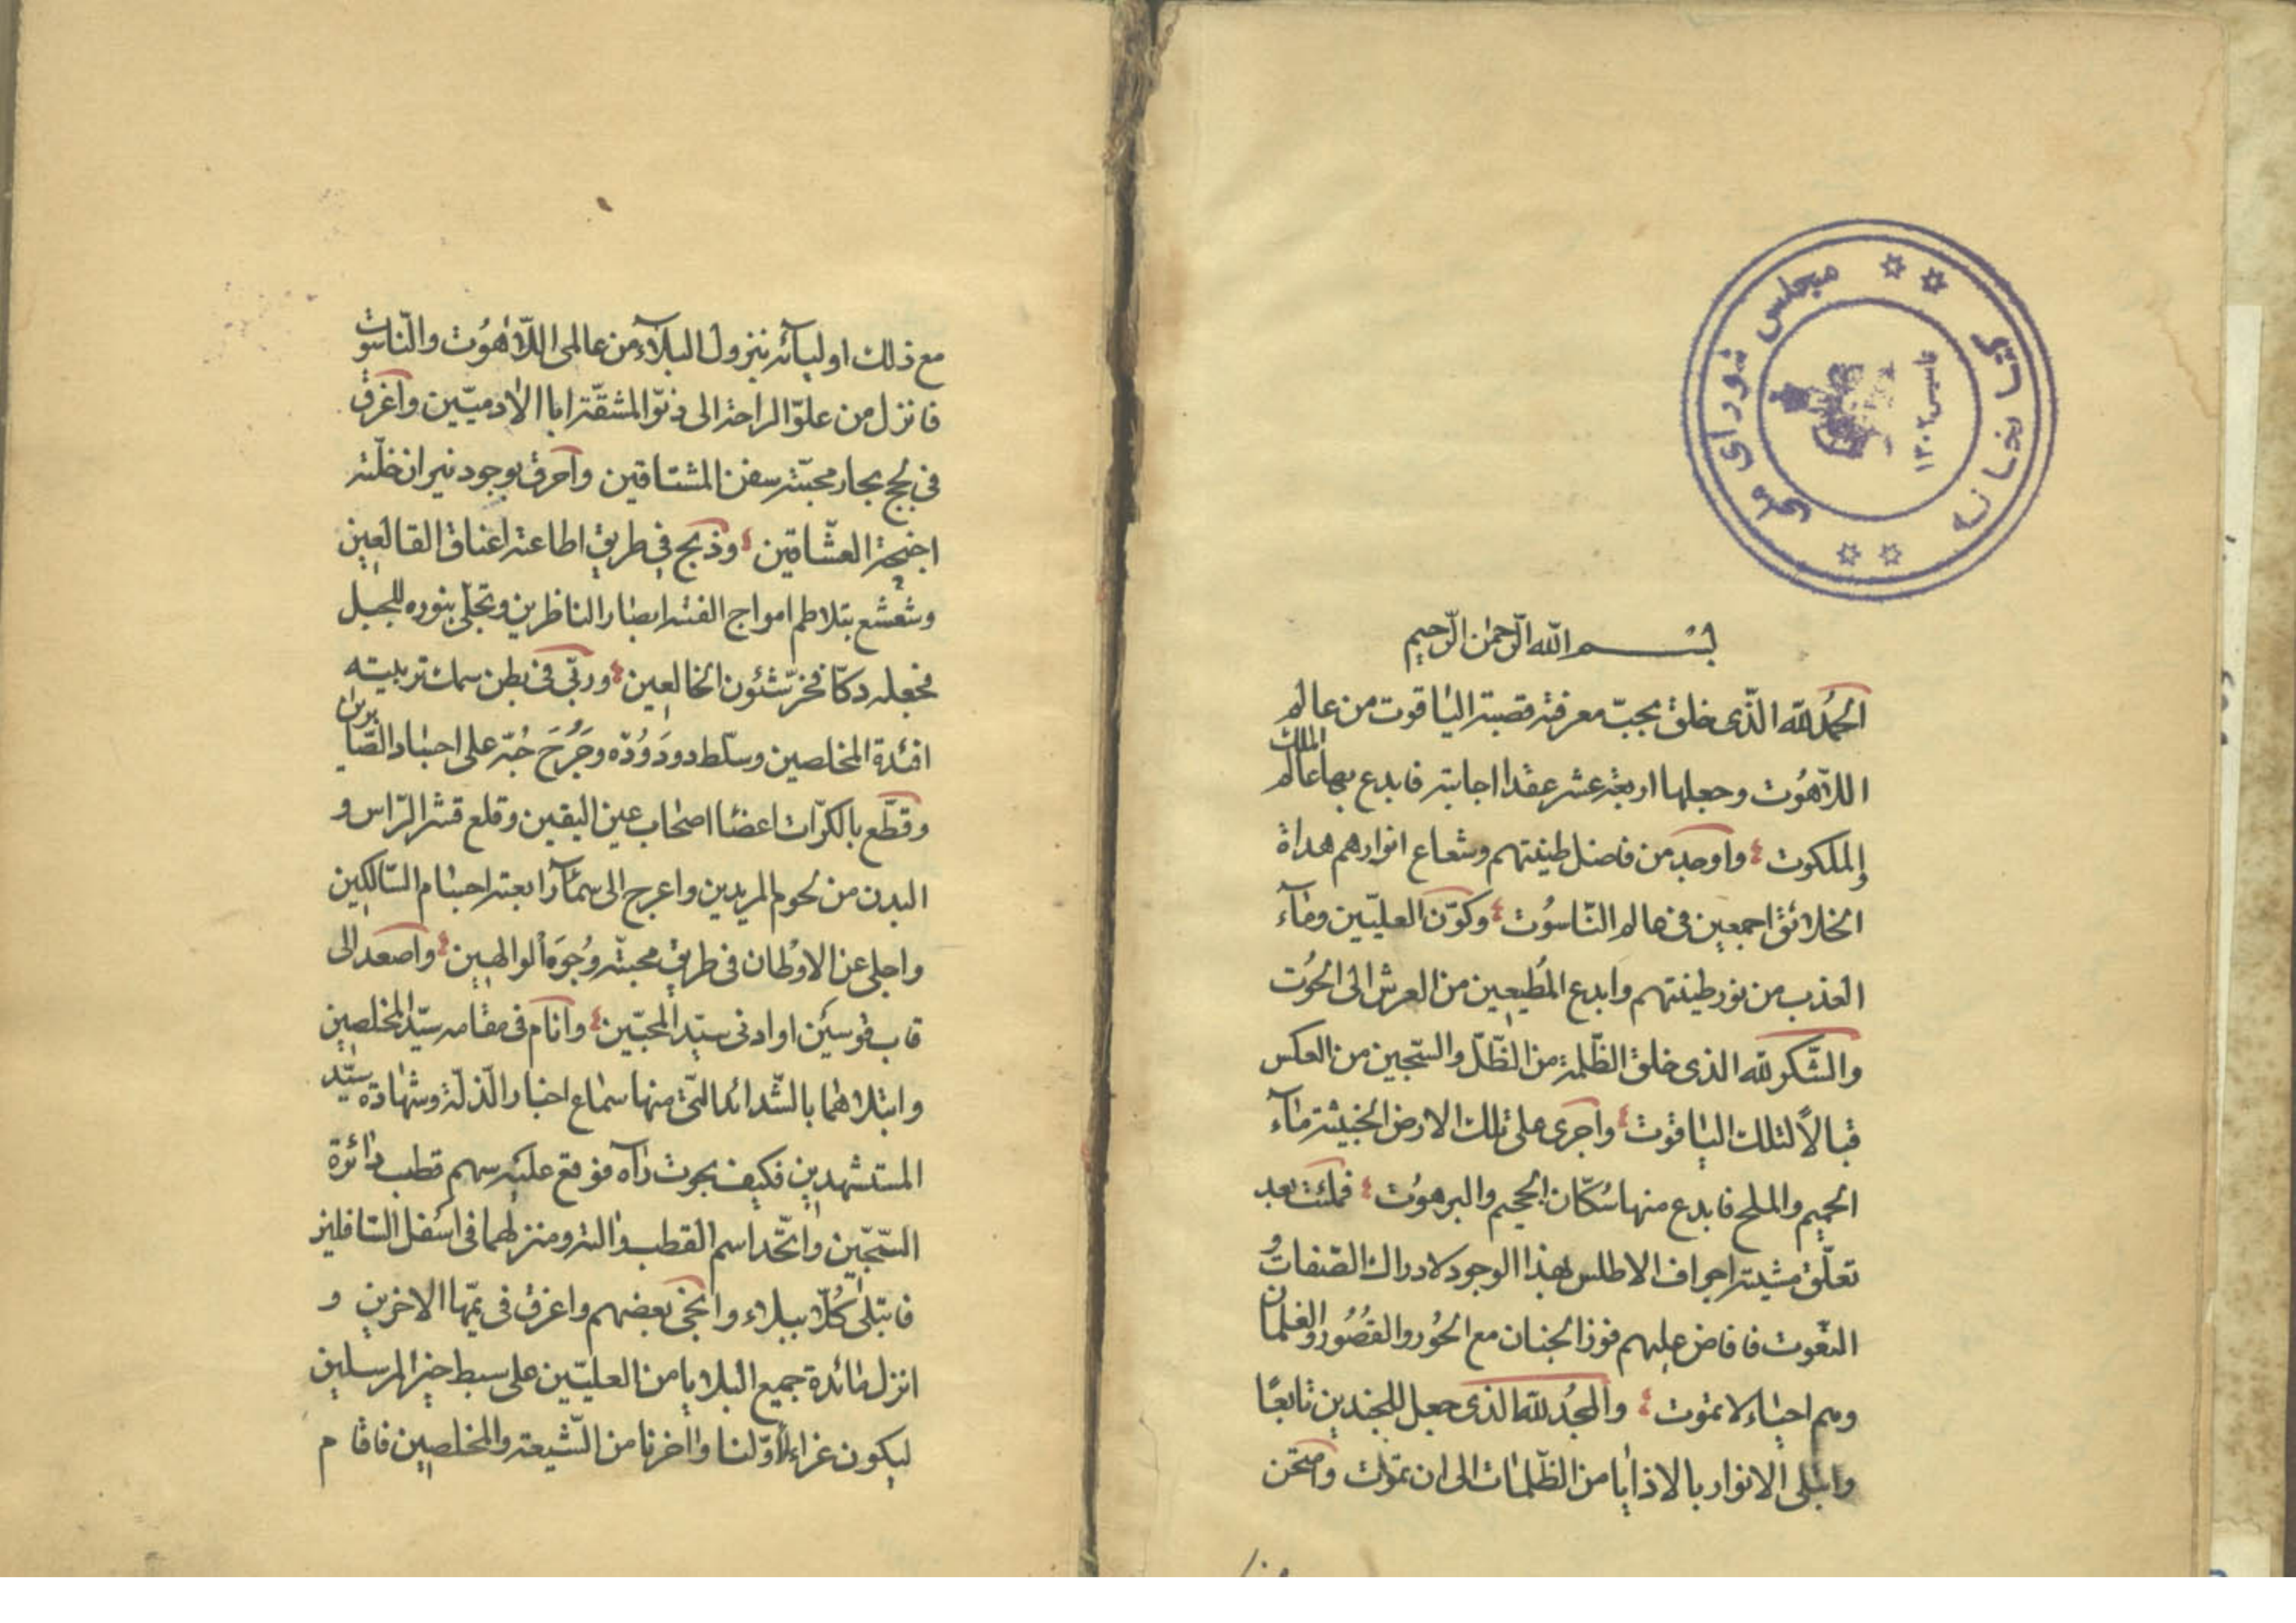 کتابخانه
مجلس شورای ملی
تاسیس ۱۳۰۲
بسم الله الرّحمن الرّحیم
الحمُد للّه الّذی خلق بحبّ معرفته قصبة الیاقوت من عالم
اللّاهُوت وجعلها اربعة عشر عقدا اجابته فابدع بها عالم الملك
والملکوت واوجد من فاضل طینتهم وشعاع انوارهم هداة
الخلائق اجمعین فی عالم النّاسُوت وکوّن العلیّین وماۤء
العذب من نور طینتهم وابدع المُطیعین من العرش الی الحُوت
والشّکر للّه الذی خلق الظّلمة من الظّلّ والسّجین من العکس
قبالاً لتلك الیاقوت واجری علی تلك الارض الخبیثة ماۤء
الحمیم والملح فابدع منها سُکّان الجحیم والبرهوُت فملئت بعد
تعلّق مشیته اجواف الاطلس بهذا الوجود لادراك الصّفات و
النّعوت فافاض علیهم فوز الجنان مع الحُور والقُصُور والغلمان
وهم احیاء لا تموت والمجُد للّه الذی جعل للجندین تابعًا
وابتلی الانوار بالاذایا من الظّلمات الی ان تموت وامتحن
مع ذلك اولیاۤئه بنزول البلاۤء من عالمی اللّاهُوت والنّاسُوت
فانزل من علوّ الراحة الی دنوّ المشقّة ابا الادمیّین واغرق
فی لجج بحار محبّته سفن المشتاقین واحرق بوجود نیران خلّته
اجنحة العشّاقین وذبح فی طریق اطاعته اعناق القالعین
وشعشع بتلاطم امواج الفته ابصار الناظرین وتجلّی بنوره للجبل
فجعله دکّا فخرّ شئون الخالعین وربّی فی بطن سمك تربیته
افئدة المخلصین وسلّط دود وُدّه وجَرُحَ حُبّه علی اجساد الصّابرین
وقطّع بالکرّات اعضا اصحاب عین الیقین وقلع قشر الرّاس و
البدن من لحوم المریدین واعرج الی سماۤء رابعة اجسام السّالکین
واجلی عن الاوْطان فی طریق محبتّه وُجوَه الوالهین واصعد الی
قاب قوسین او ادنی سیّد المحبّین وانام فی مقامه سیّد المخلصین
وابتلاهما بالشّدائد الّتی منها سماع اخبار الذّلّة وشهادة سیّد
المستشهدین فکیف بحوت راۤه فوقع علیه سهم قطب دائرة
السّجّین واتّحد اسم القطب والته ومنزلهما فی اسْفل السّافلین
فابتلی کُلّا ببلاء وانجی بعضهم واغرق فی یمّها الاخرین و
انزل مائدة جمیع البلایا من العلیّین علی سبط خیر المرسلین
لیکون عزاء لأوّلنا واخرنا من الشّیعة والمخلصین فاقام